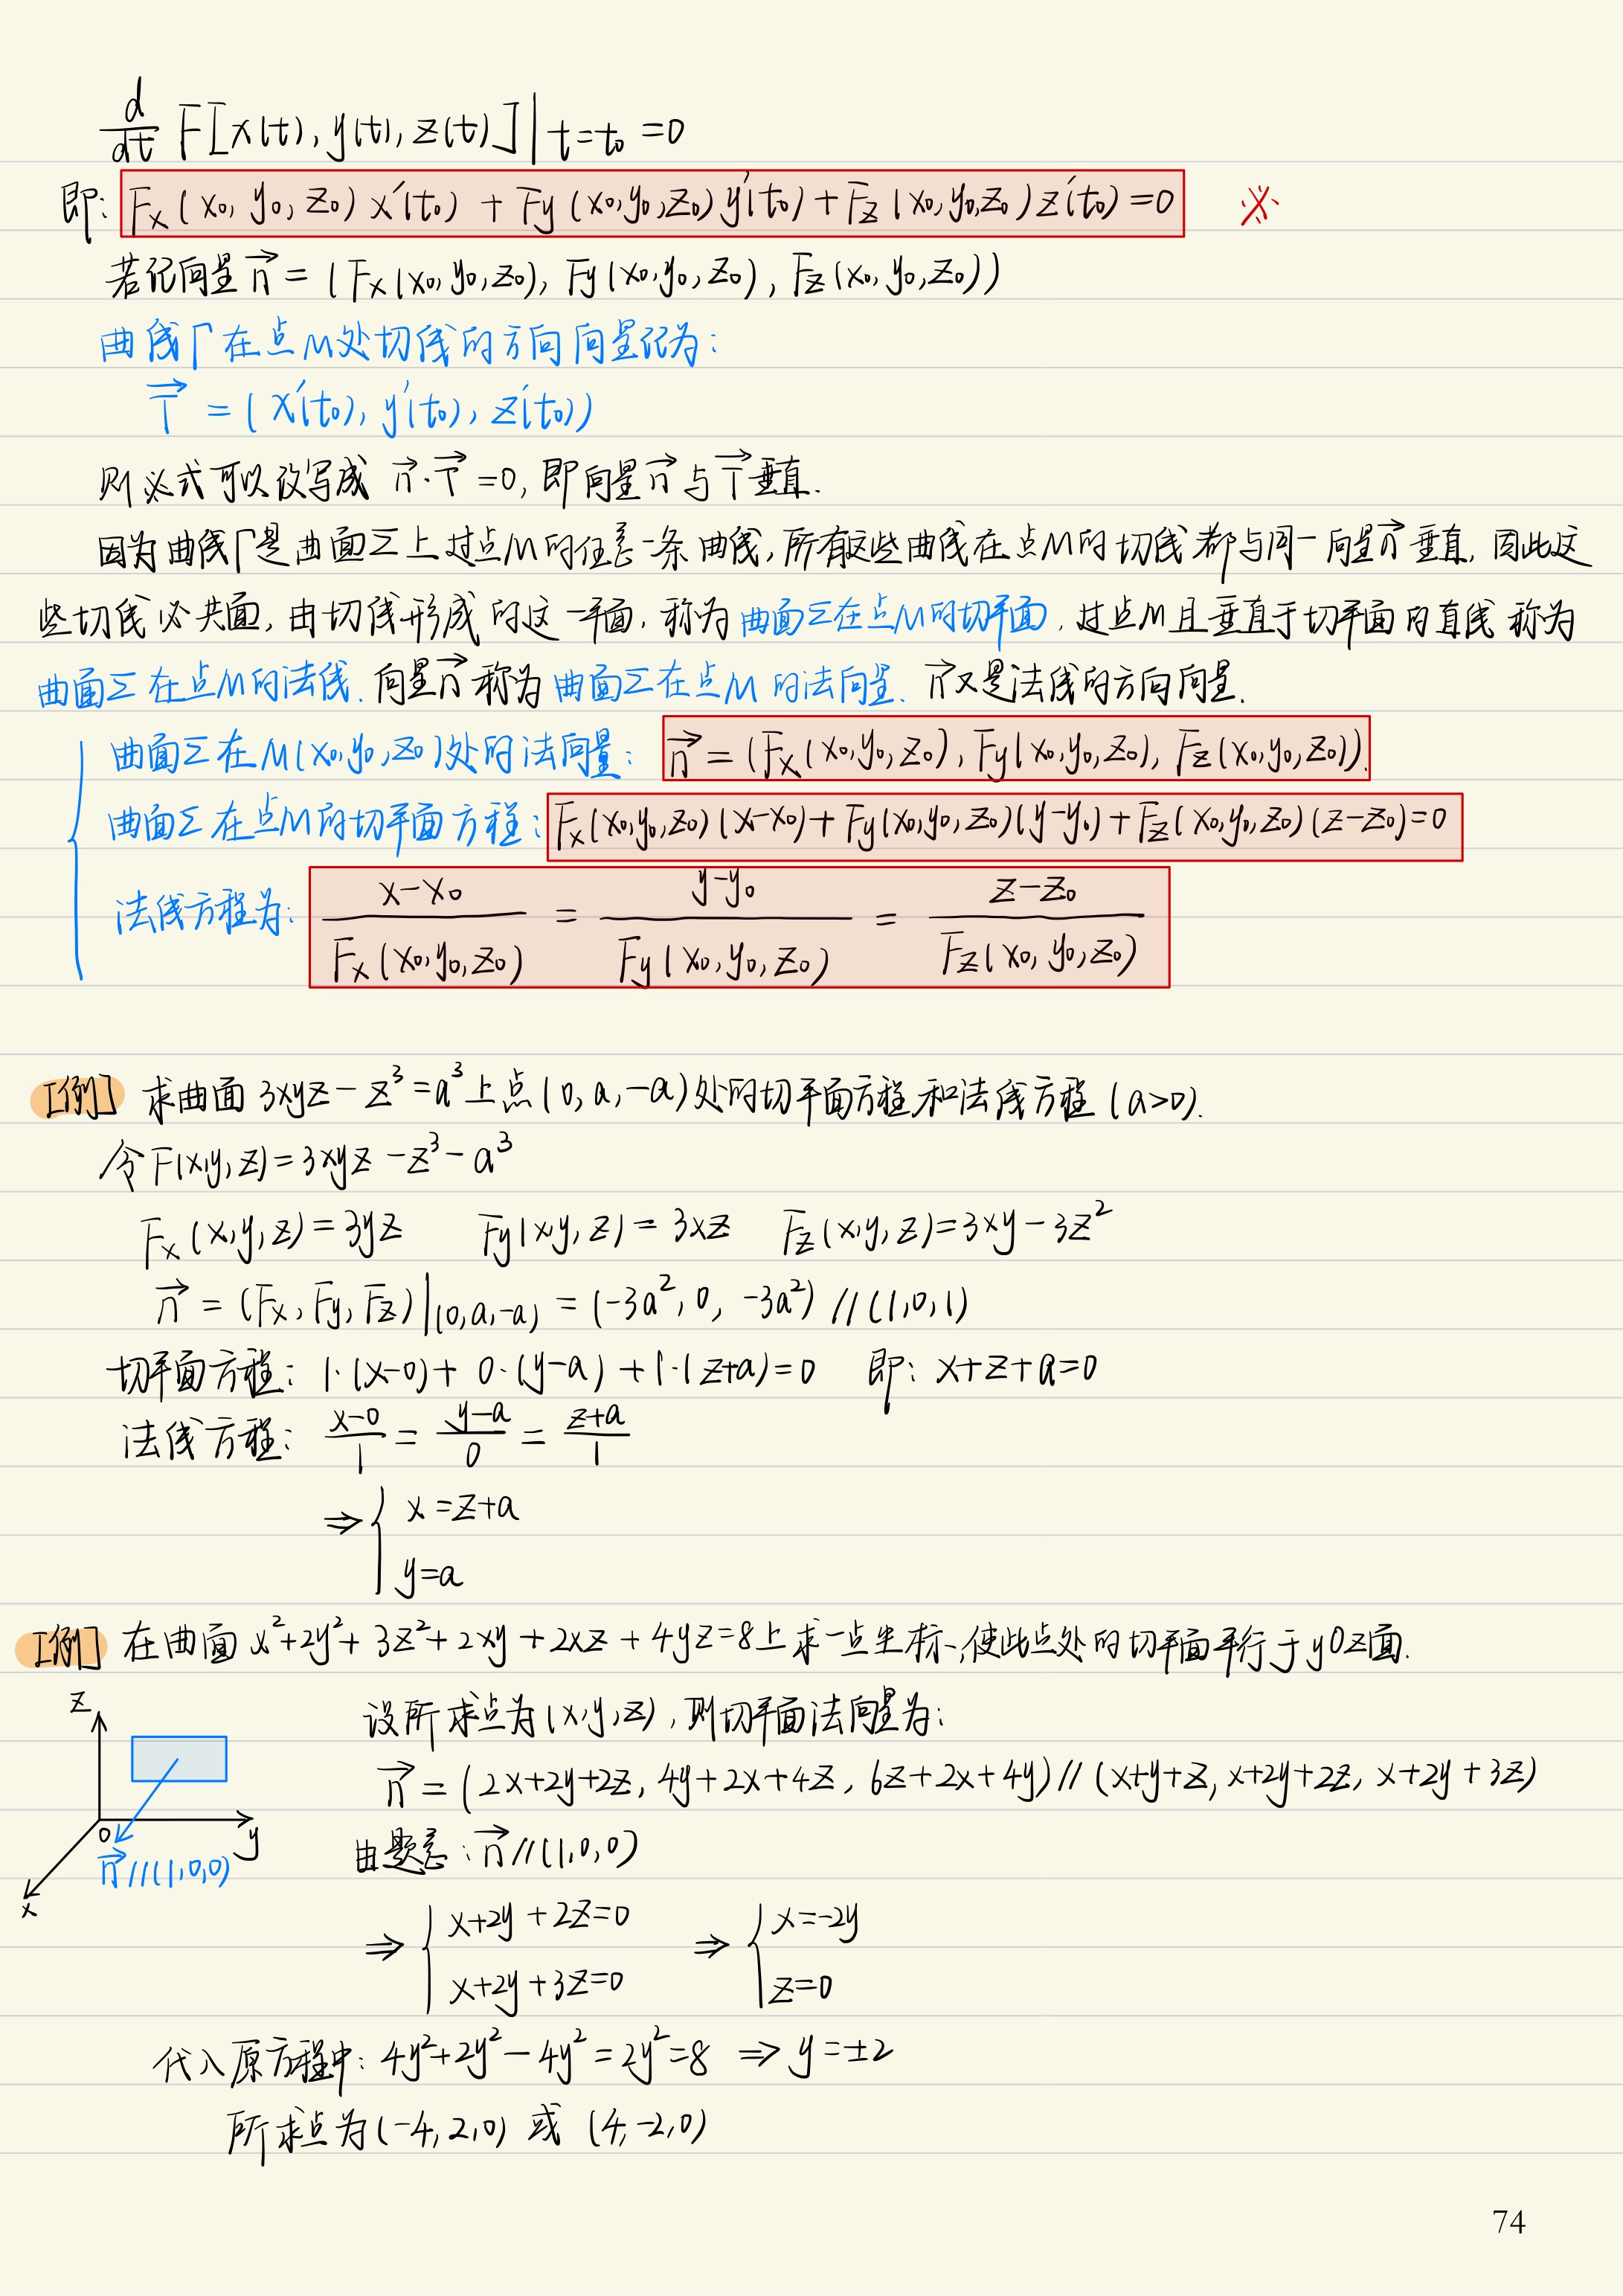 d/dt F[x(t), y(t), z(t)]|t=t₀ =0
即: Fx(x₀, y₀, z₀) x′(t₀) + Fy(x₀,y₀,z₀) y′(t₀) + Fz(x₀,y₀,z₀) z′(t₀) = 0 ※
若记向量 n⃗ = (Fx(x₀,y₀,z₀), Fy(x₀,y₀,z₀), Fz(x₀,y₀,z₀))
曲线Γ在点M处切线的方向向量记为:
T⃗ = (x′(t₀), y′(t₀), z′(t₀))
则※式可以改写成 n⃗·T⃗ =0, 即向量n⃗与T⃗垂直.
因为曲线Γ是曲面Σ上过点M的任意一条曲线,所有这些曲线在点M的切线都与同一向量n⃗垂直, 因此这
些切线必共面, 由切线形成的这一平面, 称为曲面Σ在点M的切平面, 过点M且垂直于切平面的直线称为
曲面Σ在点M的法线. 向量n⃗称为曲面Σ在点M的法向量. n⃗又是法线的方向向量.
曲面Σ在M(x₀,y₀,z₀)处的法向量: n⃗ = (Fx(x₀,y₀,z₀), Fy(x₀,y₀,z₀), Fz(x₀,y₀,z₀)).
曲面Σ在点M的切平面方程: Fx(x₀,y₀,z₀)(x−x₀)+Fy(x₀,y₀,z₀)(y−y₀)+Fz(x₀,y₀,z₀)(z−z₀)=0
法线方程为: (x−x₀)/Fx(x₀,y₀,z₀) = (y−y₀)/Fy(x₀,y₀,z₀) = (z−z₀)/Fz(x₀,y₀,z₀)
[例] 求曲面 3xyz − z³ = a³ 上点(0, a, −a)处的切平面方程和法线方程 (a>0).
令F(x,y,z) = 3xyz − z³ − a³
Fx(x,y,z) = 3yz Fy(x,y,z) = 3xz Fz(x,y,z) = 3xy − 3z²
n⃗ = (Fx, Fy, Fz)|(0,a,−a) = (−3a², 0, −3a²) // (1,0,1)
切平面方程: 1·(x−0) + 0·(y−a) + 1·(z+a) = 0 即: x+z+a=0
法线方程: (x−0)/1 = (y−a)/0 = (z+a)/1
⇒ { x = z+a
y=a
[例] 在曲面 x²+2y²+3z²+2xy+2xz+4yz=8上求一点坐标,使此点处的切平面平行于yOz面.
z
设所求点为(x,y,z), 则切平面法向量为:
n⃗ = (2x+2y+2z, 4y+2x+4z, 6z+2x+4y) // (x+y+z, x+2y+2z, x+2y+3z)
0 y
n⃗//(1,0,0)
x
由题意: n⃗//(1,0,0)
⇒ { x+2y+2z=0 ⇒ { x=−2y
x+2y+3z=0 z=0
代入原方程中: 4y²+2y²−4y²=2y²=8 ⇒ y=±2
所求点为(−4,2,0) 或 (4,−2,0)
74